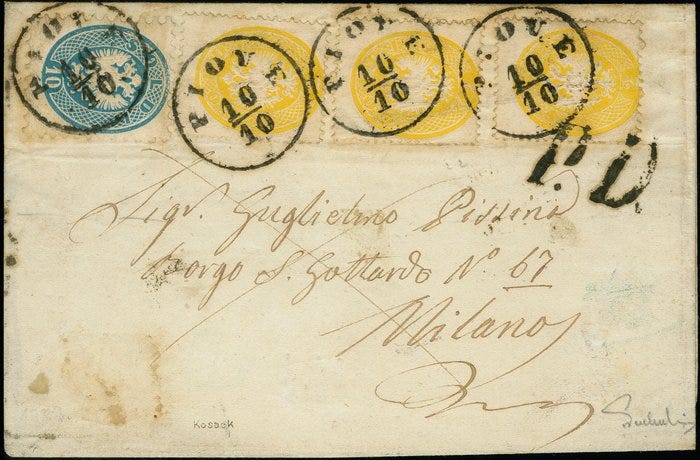 PIOVE 10/10
PIOVE 10/10
PIOVE 10/10
PIOVE 10/10
10
P.D.
Sigr. Guglielmo Pissina
Borgo S. Gottardo No 67
Milano
Kosack